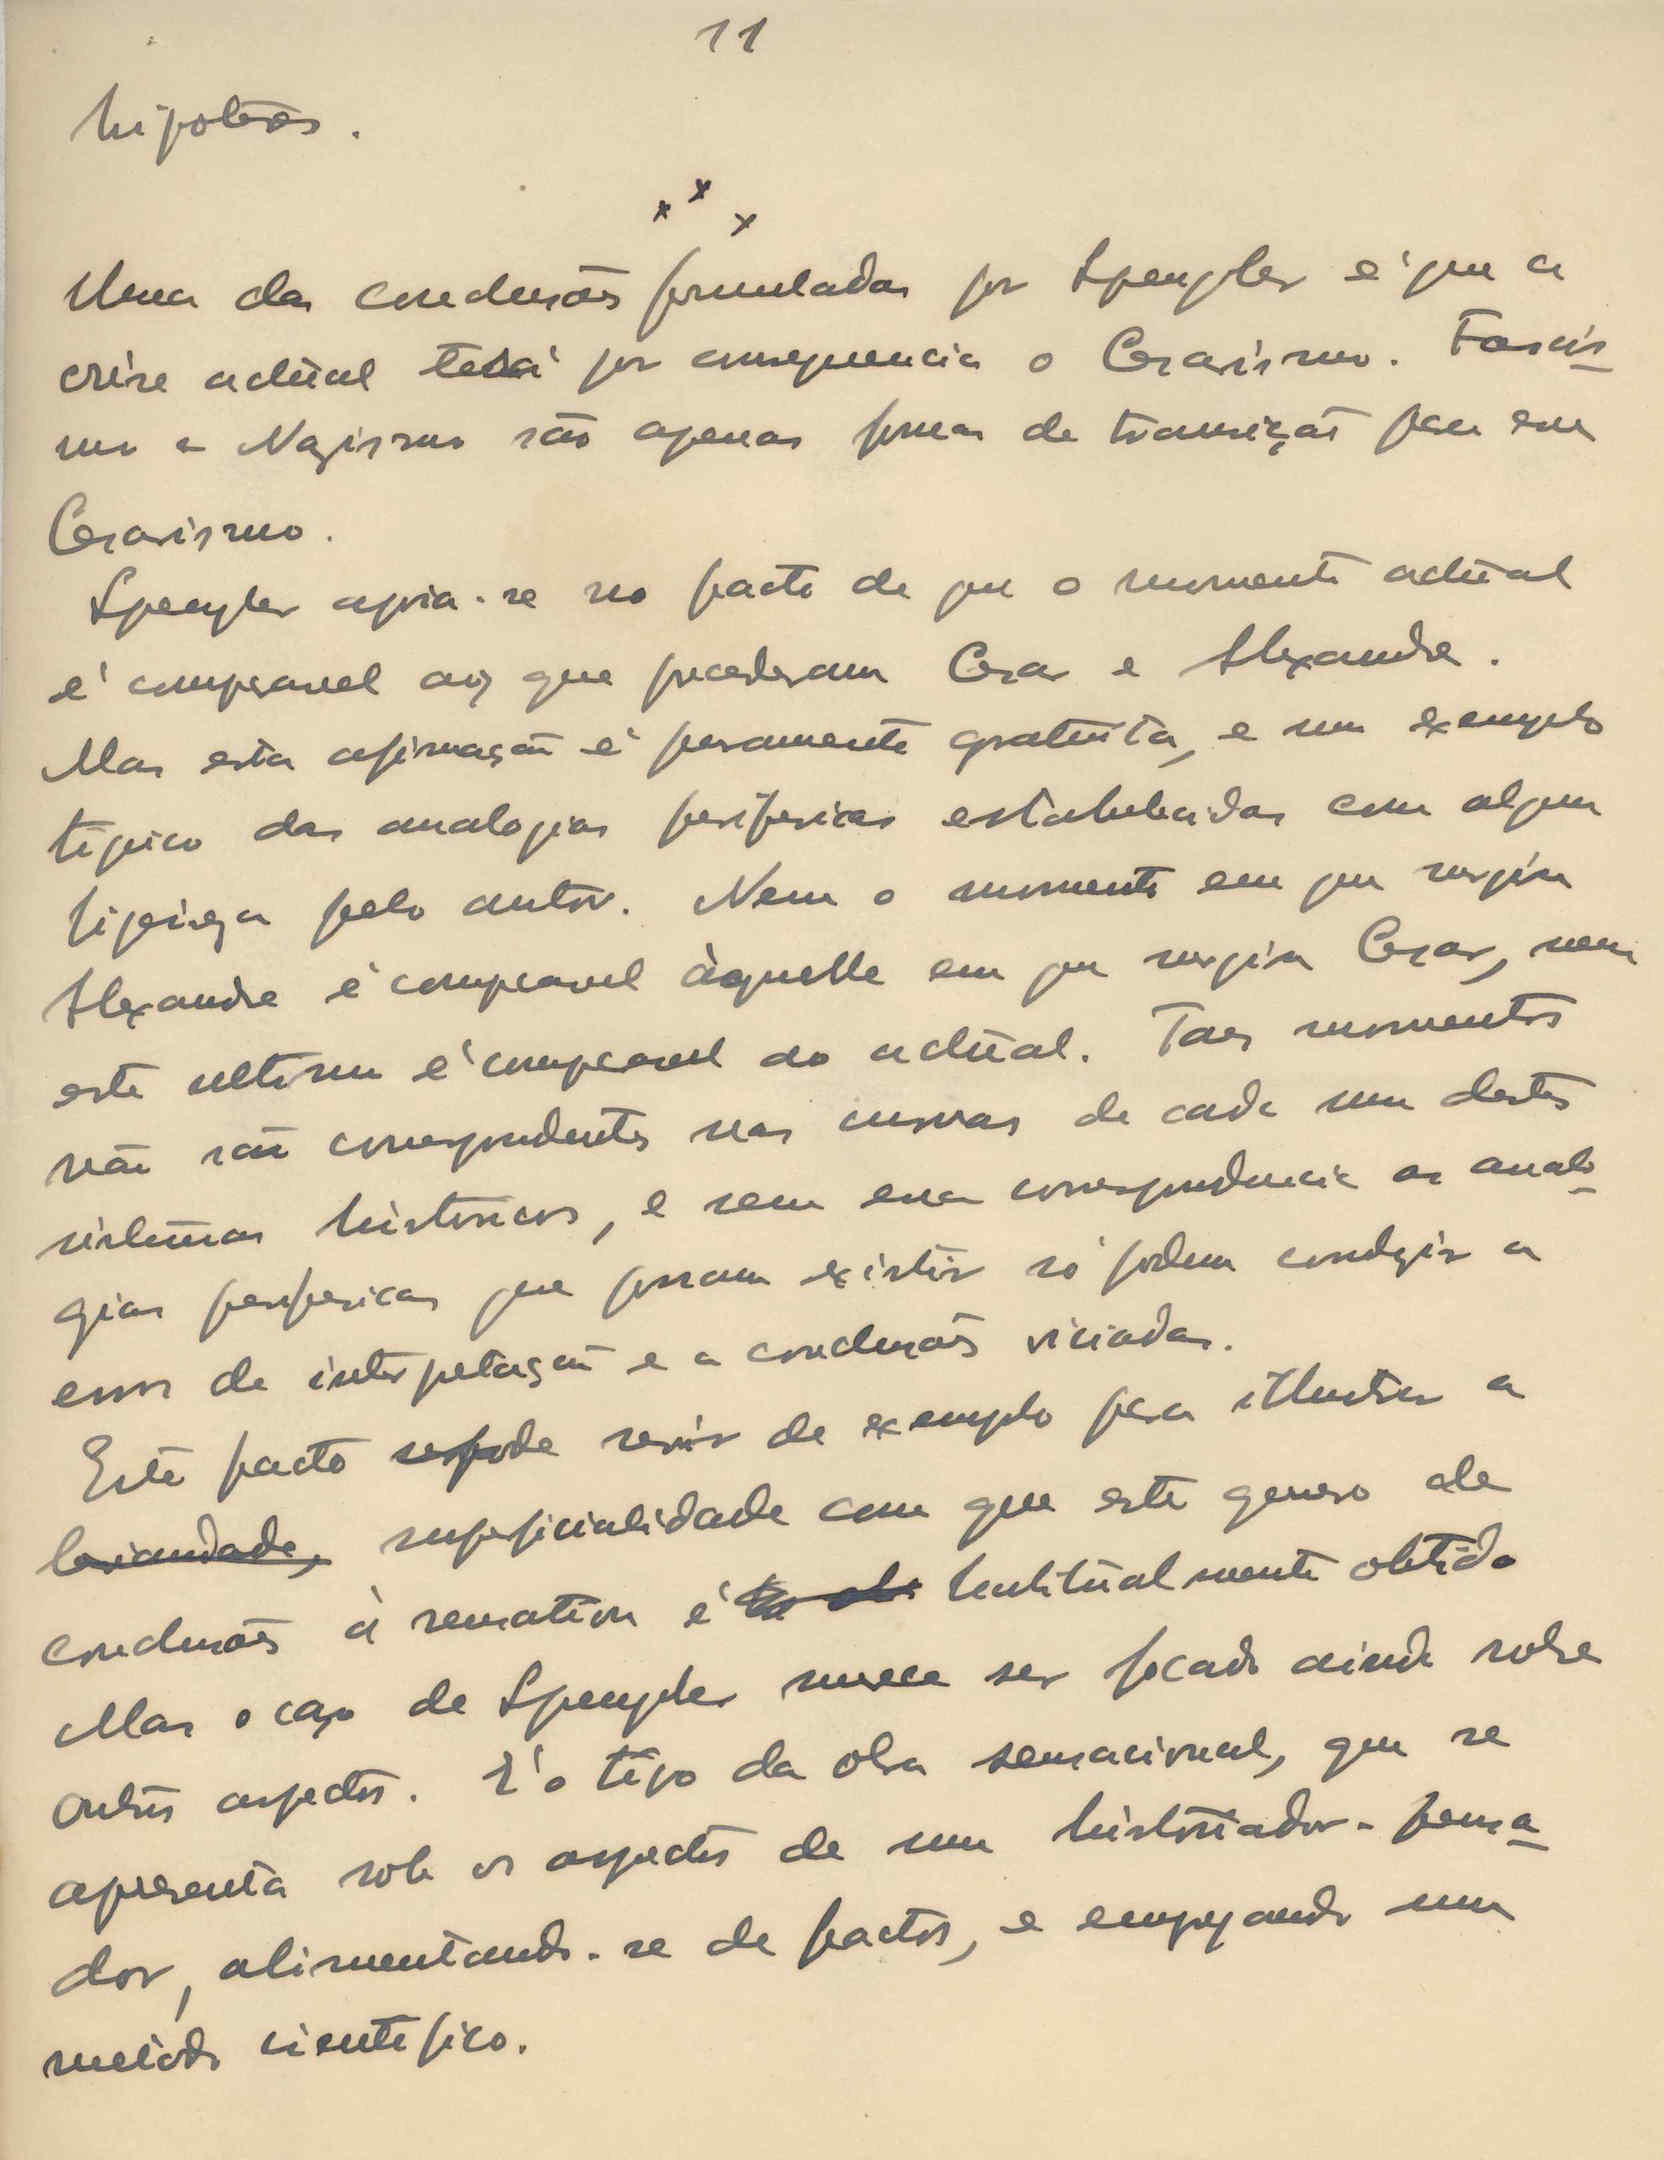 11
hipoteses.
x x x
Uma das conclusões formuladas por Spengler é que a
crise actual terá por consequencia o Cesarismo. Fascis-
mo e Nazismo são apenas formas de transição para esse
Cesarismo.
Spengler apoia-se no facto de que o momento actual
é comparavel aos que precederam Cesar e Alexandre.
Mas esta afirmação é puramente gratuita, e um exemplo
tipico das analogias perifericas estabelecidas com alguma
ligeireza pelo autor. Nem o momento em que surgiu
Alexandre é comparavel àquelle em que surgiu Cesar, nem
este ultimo é comparavel ao actual. Taes momentos
não são correspondentes nas curvas de cada um destes
sistemas historicos, e sem essa correspondencia as analo-
gias perifericas que possam existir só podem conduzir a
erros de interpretação e a conclusões viciadas.
Este facto pode servir de exemplo para illustrar a
leviandade, superficialidade com que este genero de
conclusões à sensation é habitualmente obtido
Mas o caso de Spengler merece ser focado ainda sobre
outros aspectos. É o tipo da obra sensacional, que se
apresenta sob os aspectos de um historiador-pensa-
dor, alimentando-se de factos, e empregando um
metodo cientifico.